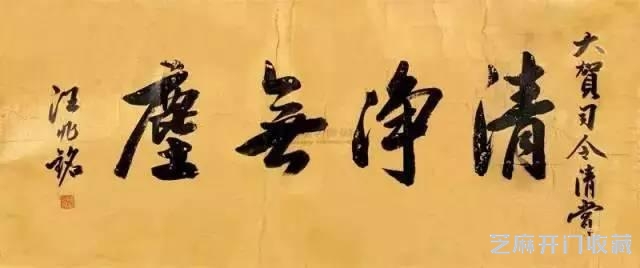 大賀司令清赏
清淨無塵
汪兆銘
芝麻开门收藏